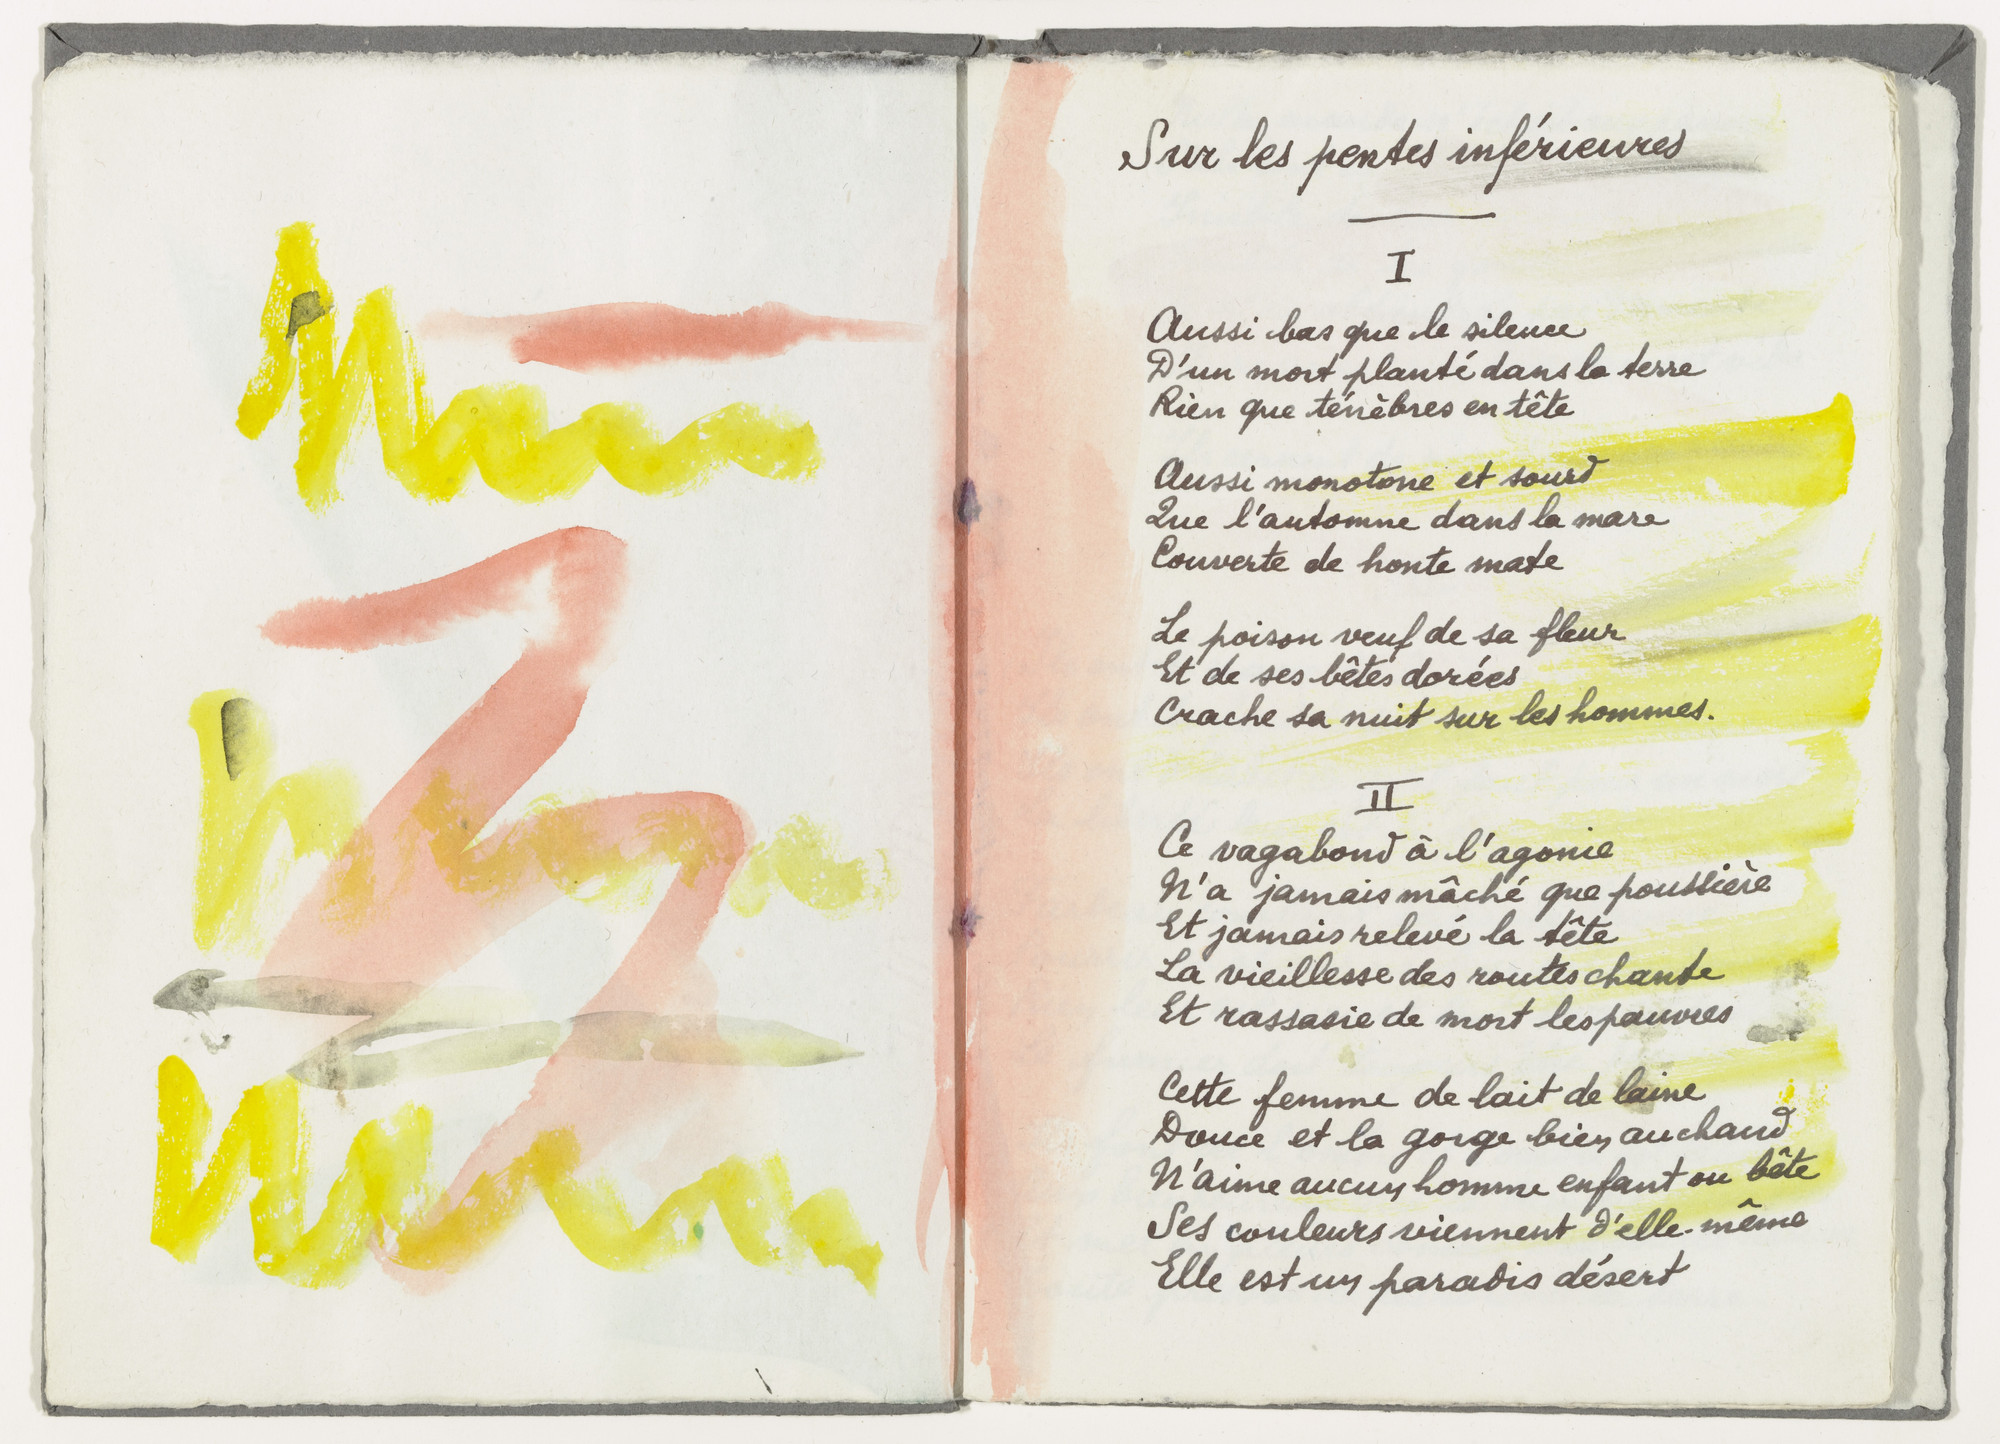 Sur les pentes inférieures
I
Aussi bas que le silence
D'un mort planté dans la terre
Rien que ténèbres en tête
Aussi monotone et sourd
Que l'automne dans la mare
Couverte de honte mate
Le poison veuf de sa fleur
Et de ses bêtes dorées
Crache sa nuit sur les hommes.
II
Ce vagabond à l'agonie
N'a jamais mâché que poussière
Et jamais relevé la tête
La vieillesse des routes chante
Et rassasie de mort les pauvres
Cette femme de lait de laine
Douce et la gorge bien au chaud
N'aime aucun homme enfant ou bête
Ses couleurs viennent d'elle-même
Elle est un paradis désert